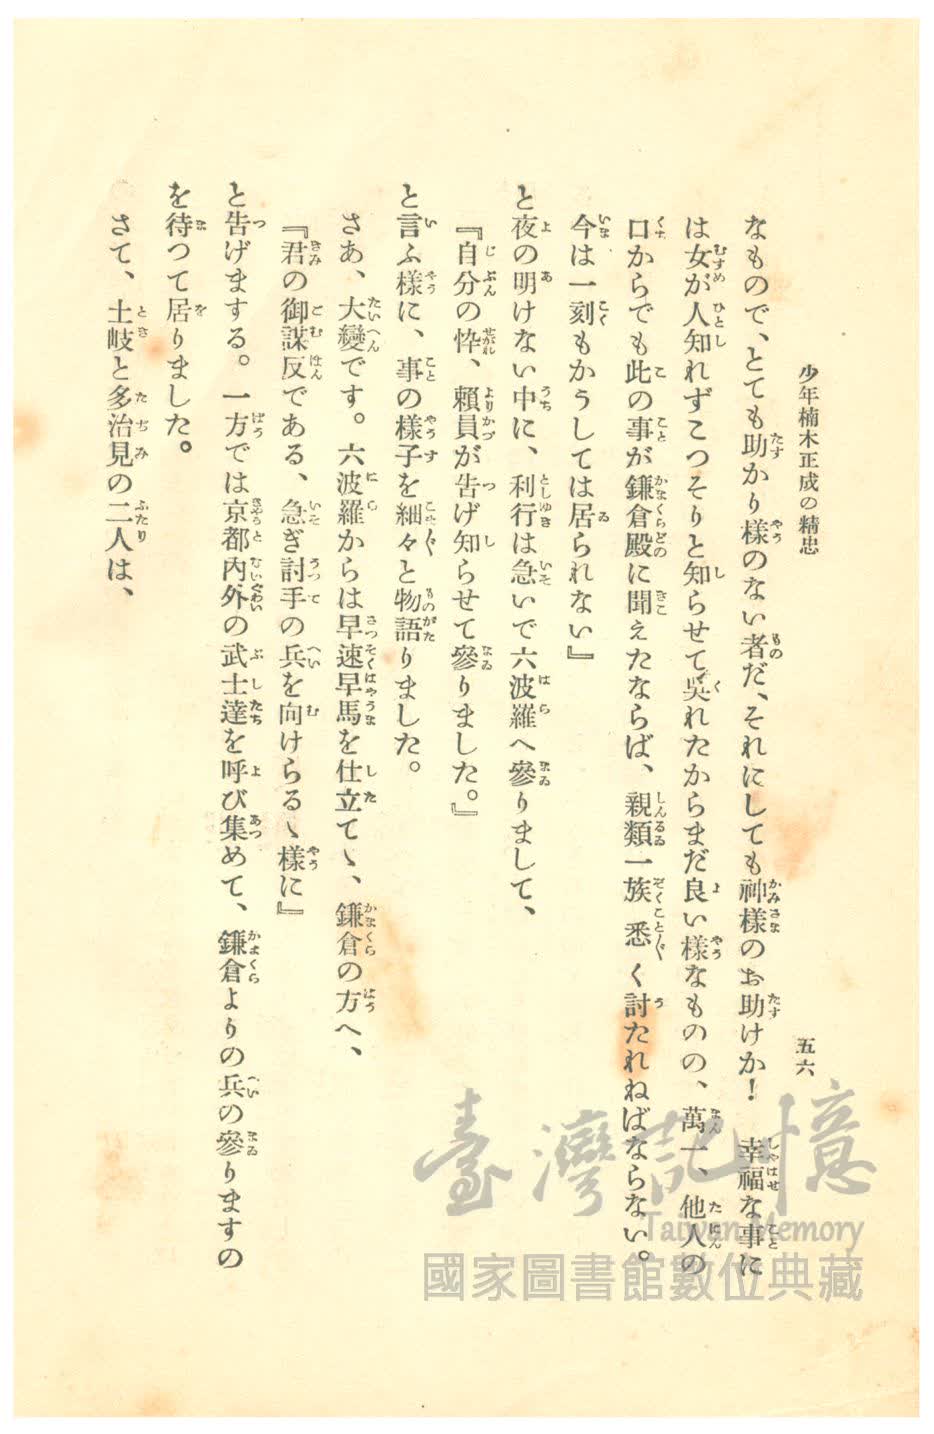 少年楠木正成の精忠
五六
なもので、とても助かり様のない者だ、それにしても神様のお助けか！　幸福な事に
は女が人知れずこつそりと知らせて呉れたからまだ良い様なものの、萬一、他人の
口からでも此の事が鎌倉殿に聞えたならば、親類一族悉く討たれねばならない。
今は一刻もかうしては居られない』
と夜の明けない中に、利行は急いで六波羅へ參りまして、
『自分の忰、賴員が告げ知らせて參りました。』
と言ふ樣に、事の樣子を細々と物語りました。
さあ、大變です。六波羅からは早速早馬を仕立てゝ、鎌倉の方へ、
『君の御謀反である、急ぎ討手の兵を向けらるゝ樣に』
と告げまする。一方では京都內外の武士達を呼び集めて、鎌倉よりの兵の參りますの
を待つて居りました。
さて、土岐と多治見の二人は、
臺灣記憶
Taiwan Memory
國家圖書館數位典藏